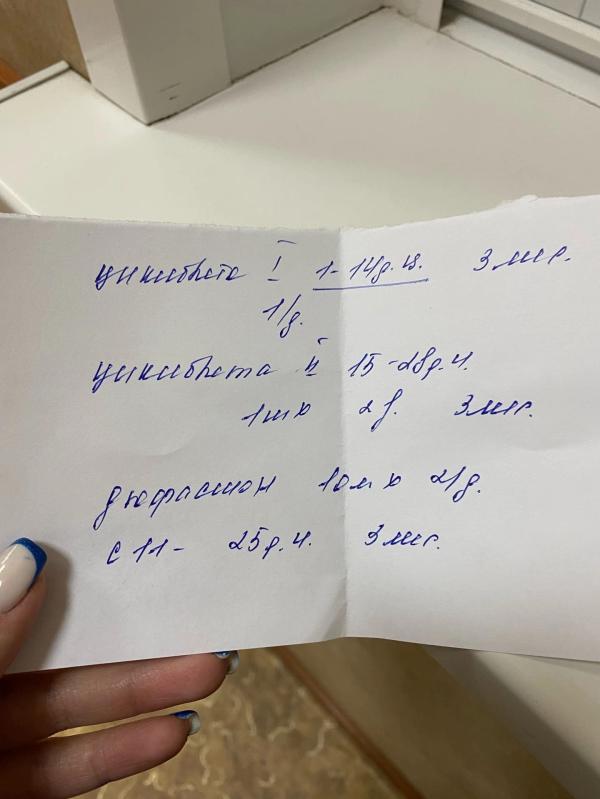 циклвита I 1-14д.ц. 3 мес.
1/д.
циклвита II 15-28д.ц.
1т х 2д. 3 мес.
дюфастон 10м х 2/д.
с 11- 25д.ц. 3 мес.